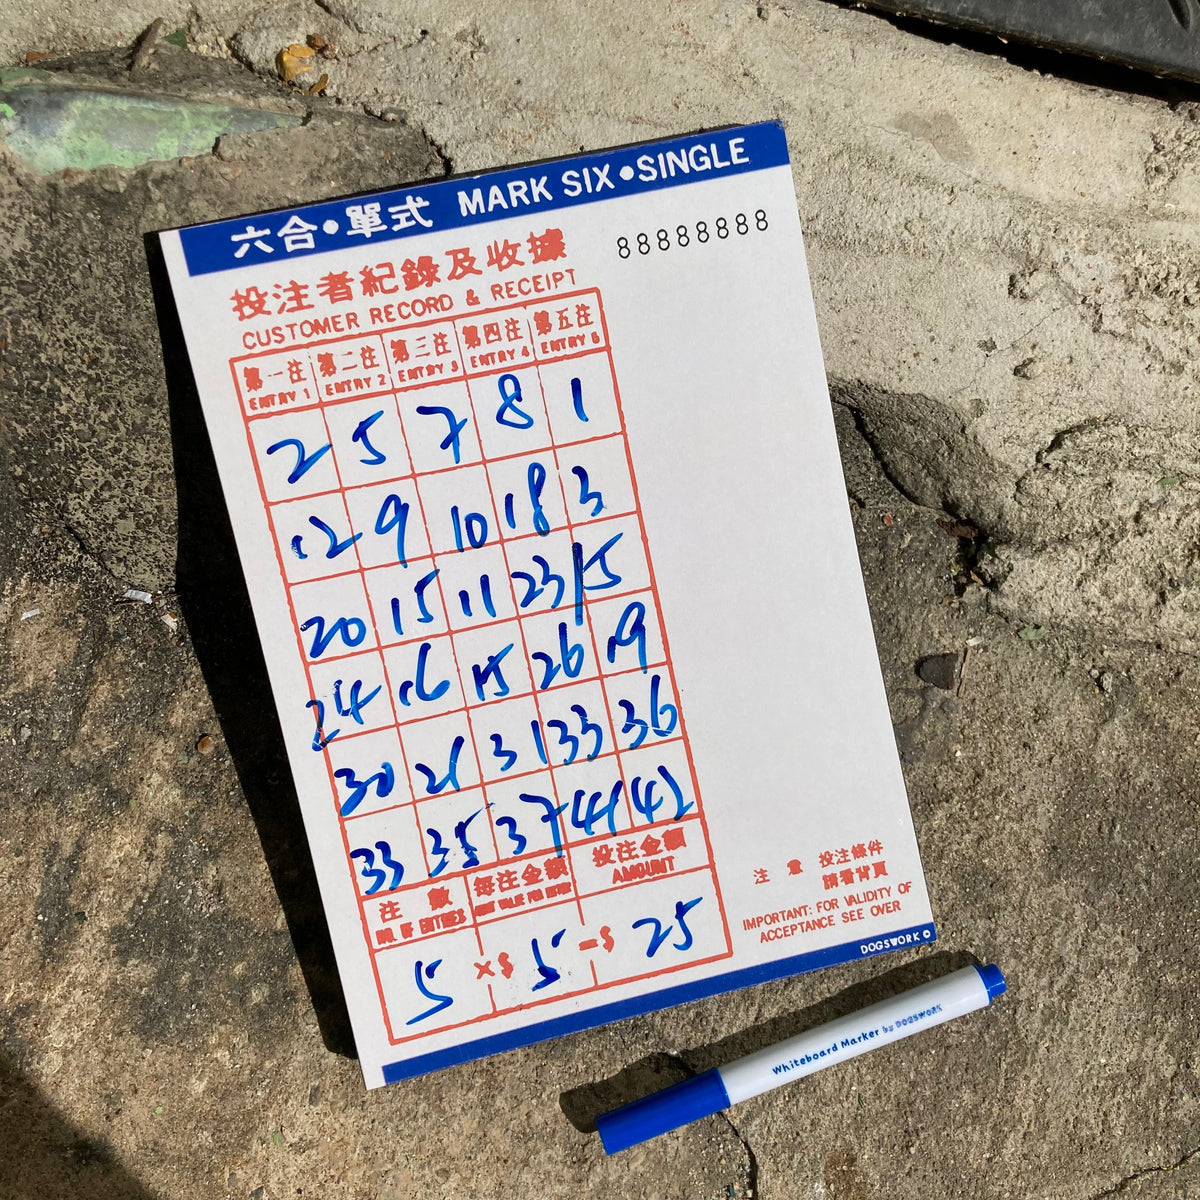 六合•單式 MARK SIX•SINGLE
投注者紀錄及收據 88888888
CUSTOMER RECORD & RECEIPT
第一注 第二注 第三注 第四注 第五注
ENTRY 1 ENTRY 2 ENTRY 3 ENTRY 4 ENTRY 5
2 5 7 8 1
12 9 10 18 3
20 15 11 23 15
24 16 15 26 19
30 21 31 33 36
33 35 37 41 42
注數 每注金額 投注金額
NO. OF ENTRIES UNIT VALUE PER ENTRY AMOUNT
5 ×$ 5 =$ 25
注意 投注條件
請看背頁
IMPORTANT: FOR VALIDITY OF
ACCEPTANCE SEE OVER
DOGSWORK
Whiteboard Marker by DOGSWORK